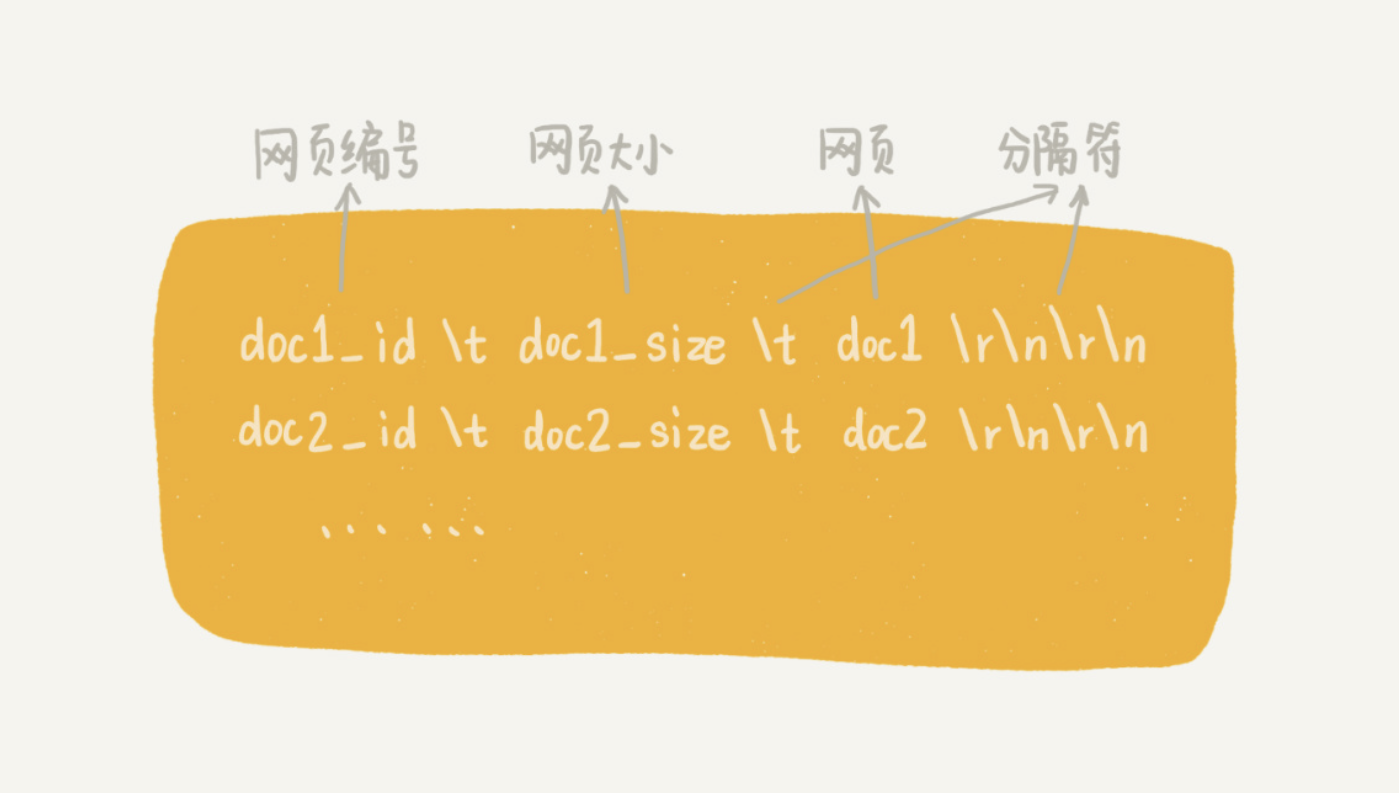 网页编号 网页大小 网页 分隔符
doc1_id \t doc1_size \t doc1 \r\n\r\n
doc2_id \t doc2_size \t doc2 \r\n\r\n
... ...